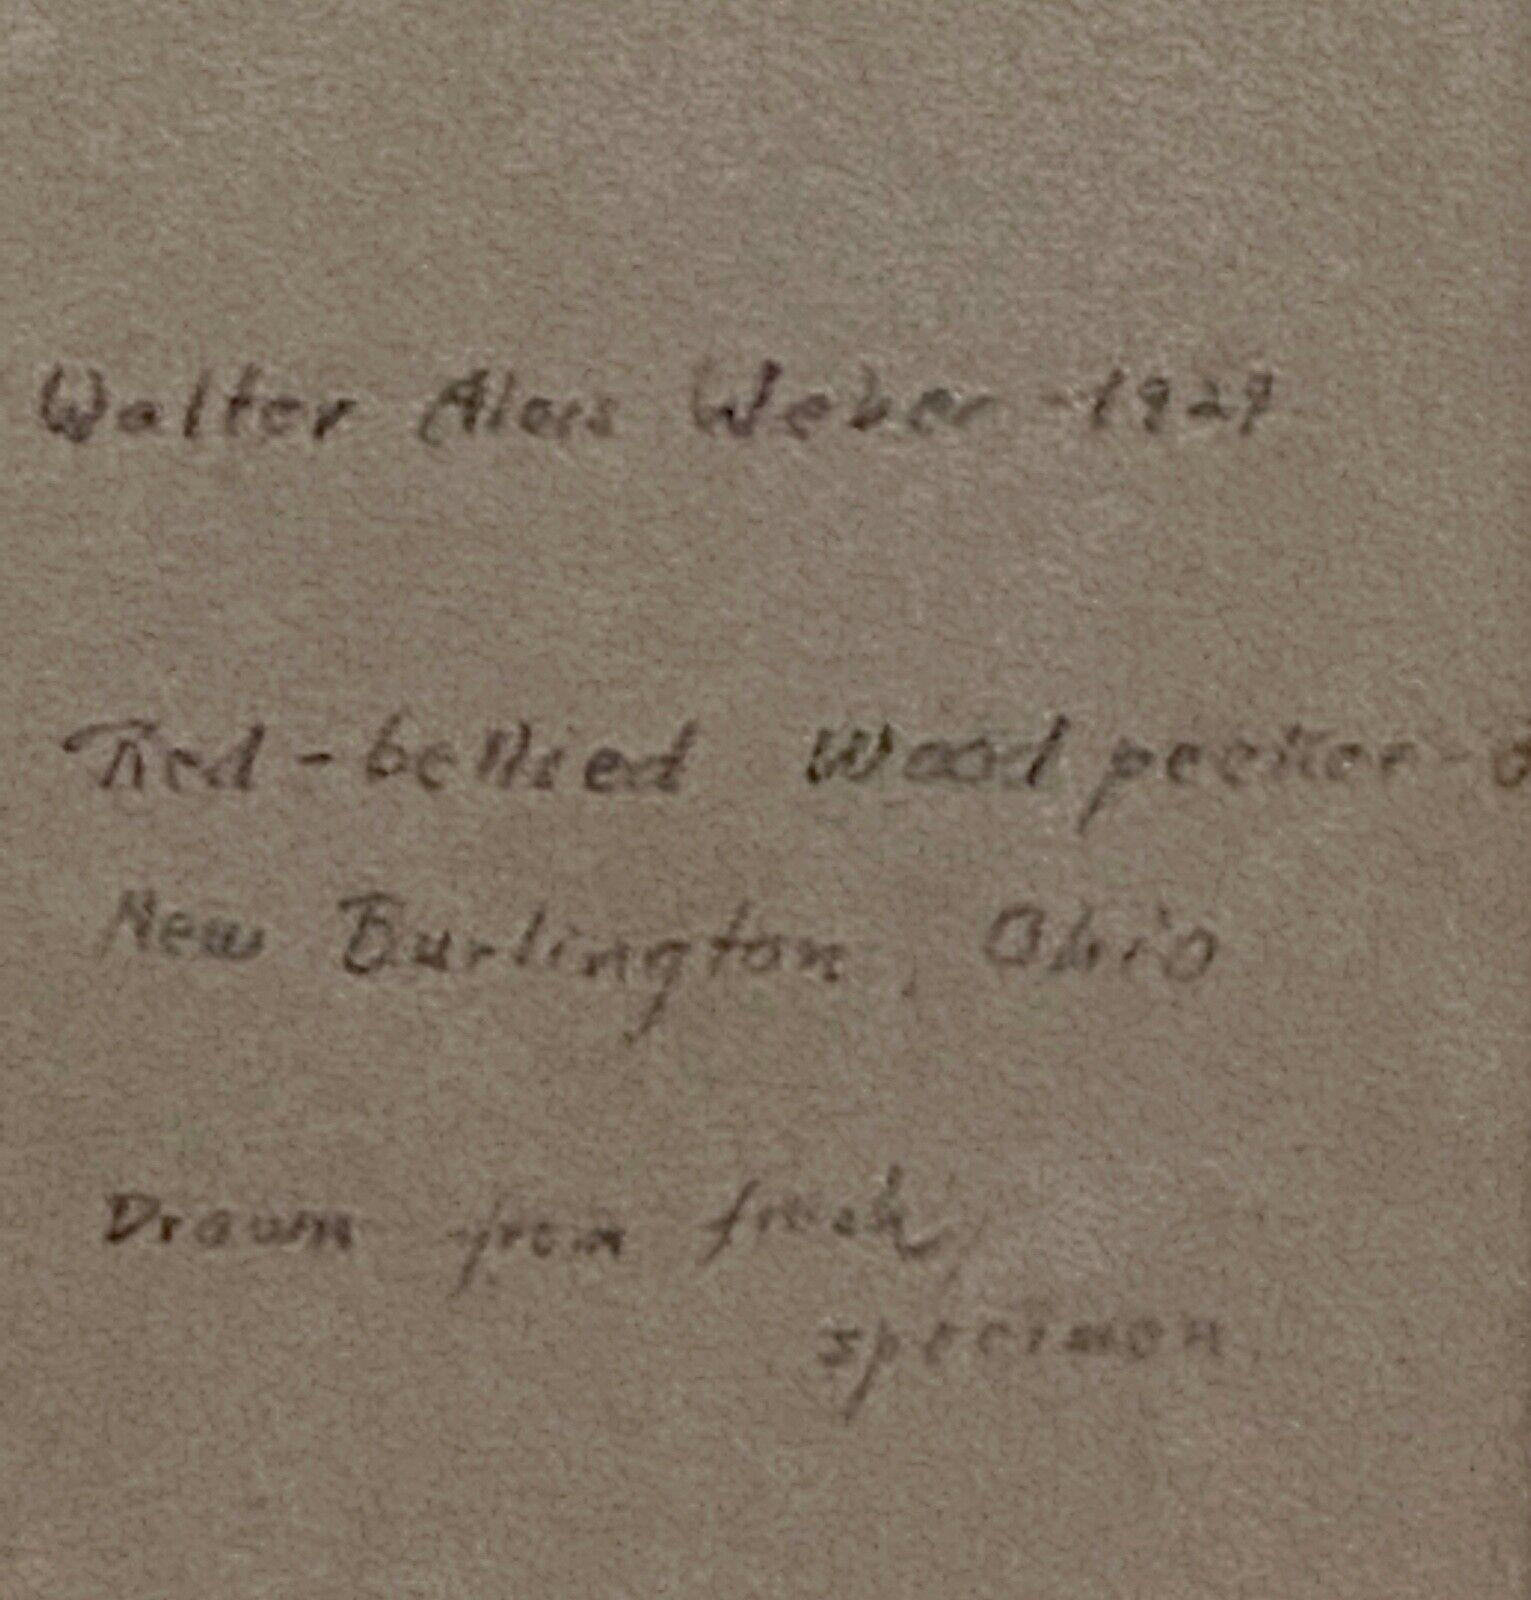 Walter Alois Weber - 1929
Red-bellied Woodpecker -
New Burlington, Ohio
Drawn from fresh
specimen